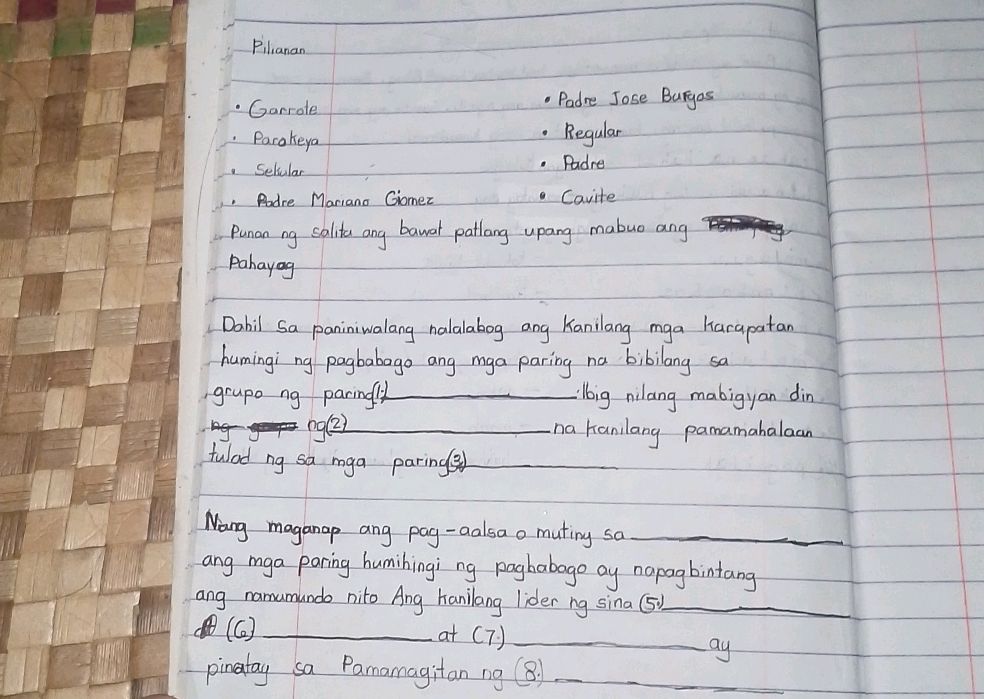 Pilianan
• Garrote
• Padre Jose Burgos
• Parokeya
• Regular
• Sekular
• Padre
• Padre Mariano Giomez
• Cavite
Punan ng salita ang bawat patlang upang mabuo ang
Pahayag
Dahil sa paniniwalang nalalabog ang kanilang mga karapatan
humingi ng pagbabago ang mga paring na bibilang sa
grupo ng paring(1.)____________.Ibig nilang mabigyan din
ng(2)____________na kanilang pamamahalaan
tulad ng sa mga paring(3.)____________
Nang maganap ang pag-aalsa o mutiny sa____________
ang mga paring humihingi ng pagbabago ay napagbintang
ang namumundo nito Ang kanilang lider ng sina (5.)____________
(6)____________at (7.)____________ay
pinatay sa Pamamagitan ng (8.)____________